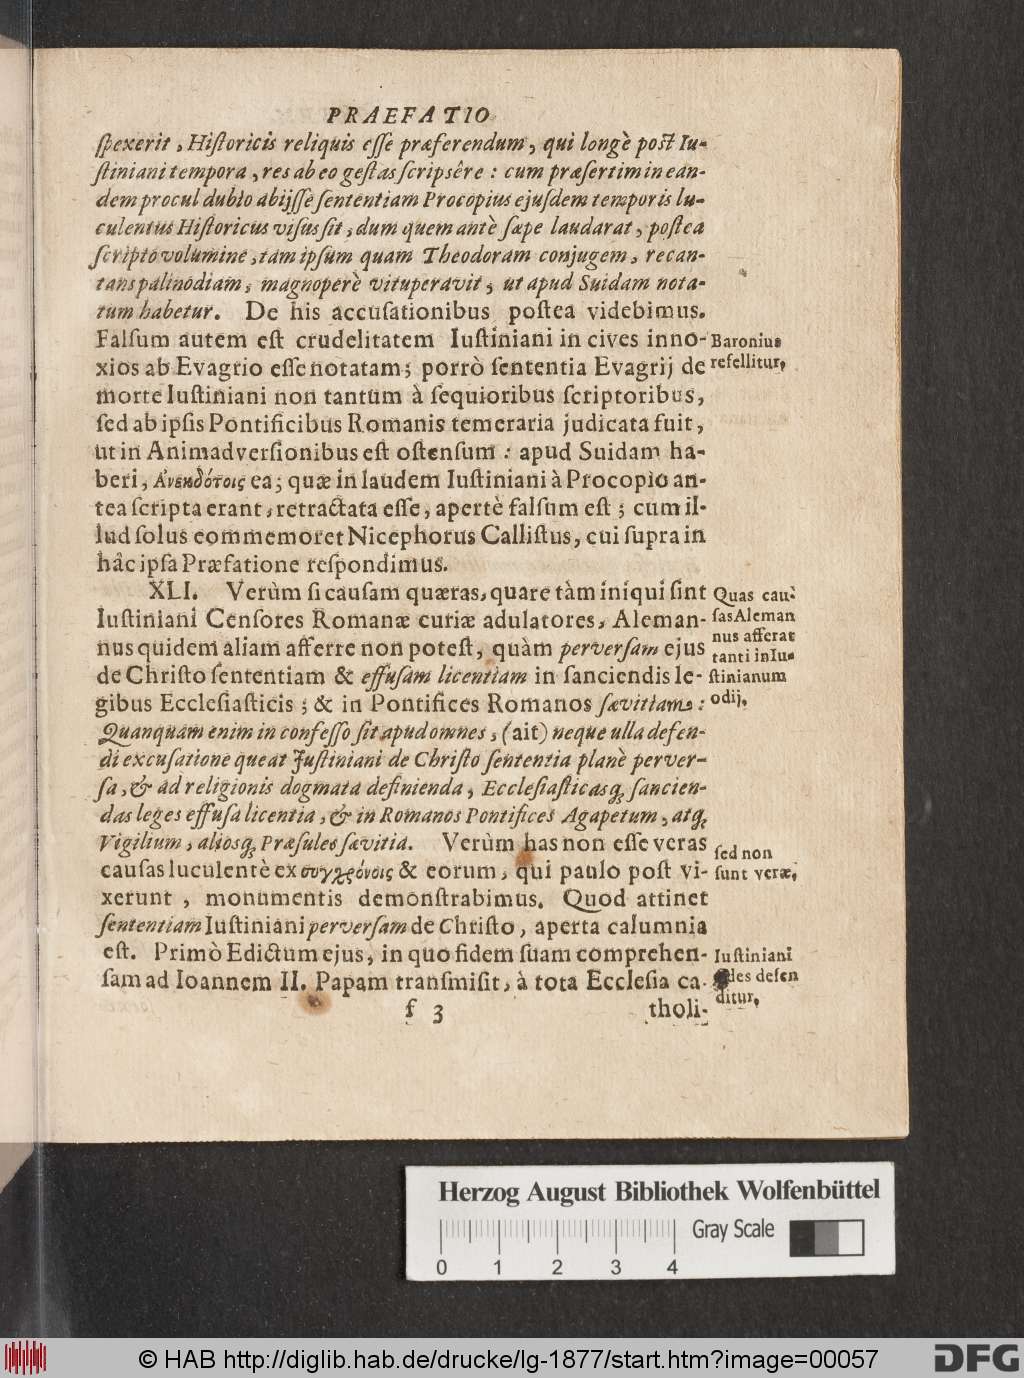 PRAEFATIO
ſpexerit, Hiſtoricis reliquis eſſe præferendum, qui longè poſt Iu-
ſtiniani tempora, res ab eo geſtas ſcripsêre : cum præſertim in ean-
dem procul dubio abijſſe ſententiam Procopius ejuſdem temporis lu-
culentus Hiſtoricus viſus ſit, dum quem antè ſæpe laudarat, poſtea
ſcripto volumine, tam ipſum quam Theodoram conjugem, recan-
tans palinodiam, magnoperè vituperavit, ut apud Suidam nota-
tum habetur. De his accuſationibus poſtea videbimus.
Falſum autem eſt crudelitatem Iuſtiniani in cives inno-
xios ab Evagrio eſſe notatam; porrò ſententia Evagrij de
morte Iuſtiniani non tantum à ſequioribus ſcriptoribus,
ſed ab ipſis Pontificibus Romanis temeraria judicata fuit,
ut in Animadverſionibus eſt oſtenſum : apud Suidam ha-
beri, Ἀνεκδότοις ea; quæ in laudem Iuſtiniani à Procopio an-
tea ſcripta erant, retractata eſſe, apertè falſum eſt ; cum il-
lud ſolus commemoret Nicephorus Calliſtus, cui ſupra in
hâc ipſa Præfatione reſpondimus.
Baronius
refellitur,
XLI. Verùm ſi cauſam quæras, quare tàm iniqui ſint
Iuſtiniani Cenſores Romanæ curiæ adulatores, Aleman-
nus quidem aliam afferre non poteſt, quàm perverſam ejus
de Chriſto ſententiam & effuſam licentiam in ſanciendis le-
gibus Eccleſiaſticis ; & in Pontifices Romanos ſævitiam :
Quanquam enim in confeſſo ſit apud omnes, (ait) neque ulla defen-
di excuſatione queat Juſtiniani de Chriſto ſententia planè perver-
ſa, & ad religionis dogmata definienda, Eccleſiaſticasq; ſancien-
das leges effuſa licentia, & in Romanos Pontifices Agapetum, atq;
Vigilium, aliosq; Præſules ſævitia. Verùm has non eſſe veras
cauſas luculentè ex συγχρόνοις & eorum, qui paulo poſt vi-
xerunt, monumentis demonſtrabimus. Quod attinet
ſententiam Iuſtiniani perverſam de Chriſto, aperta calumnia
eſt. Primò Edictum ejus, in quo fidem ſuam comprehen-
ſam ad Ioannem II. Papam transmiſit, à tota Eccleſia ca-
Quas cau-
ſas Aleman
nus afferat
tanti in Iu-
ſtinianum
odij,
ſed non
ſunt veræ,
Iuſtiniani
fides defen
ditur,
f 3
tholi-
Herzog August Bibliothek Wolfenbüttel
Gray Scale
0 1 2 3 4
© HAB http://diglib.hab.de/drucke/lg-1877/start.htm?image=00057
DFG